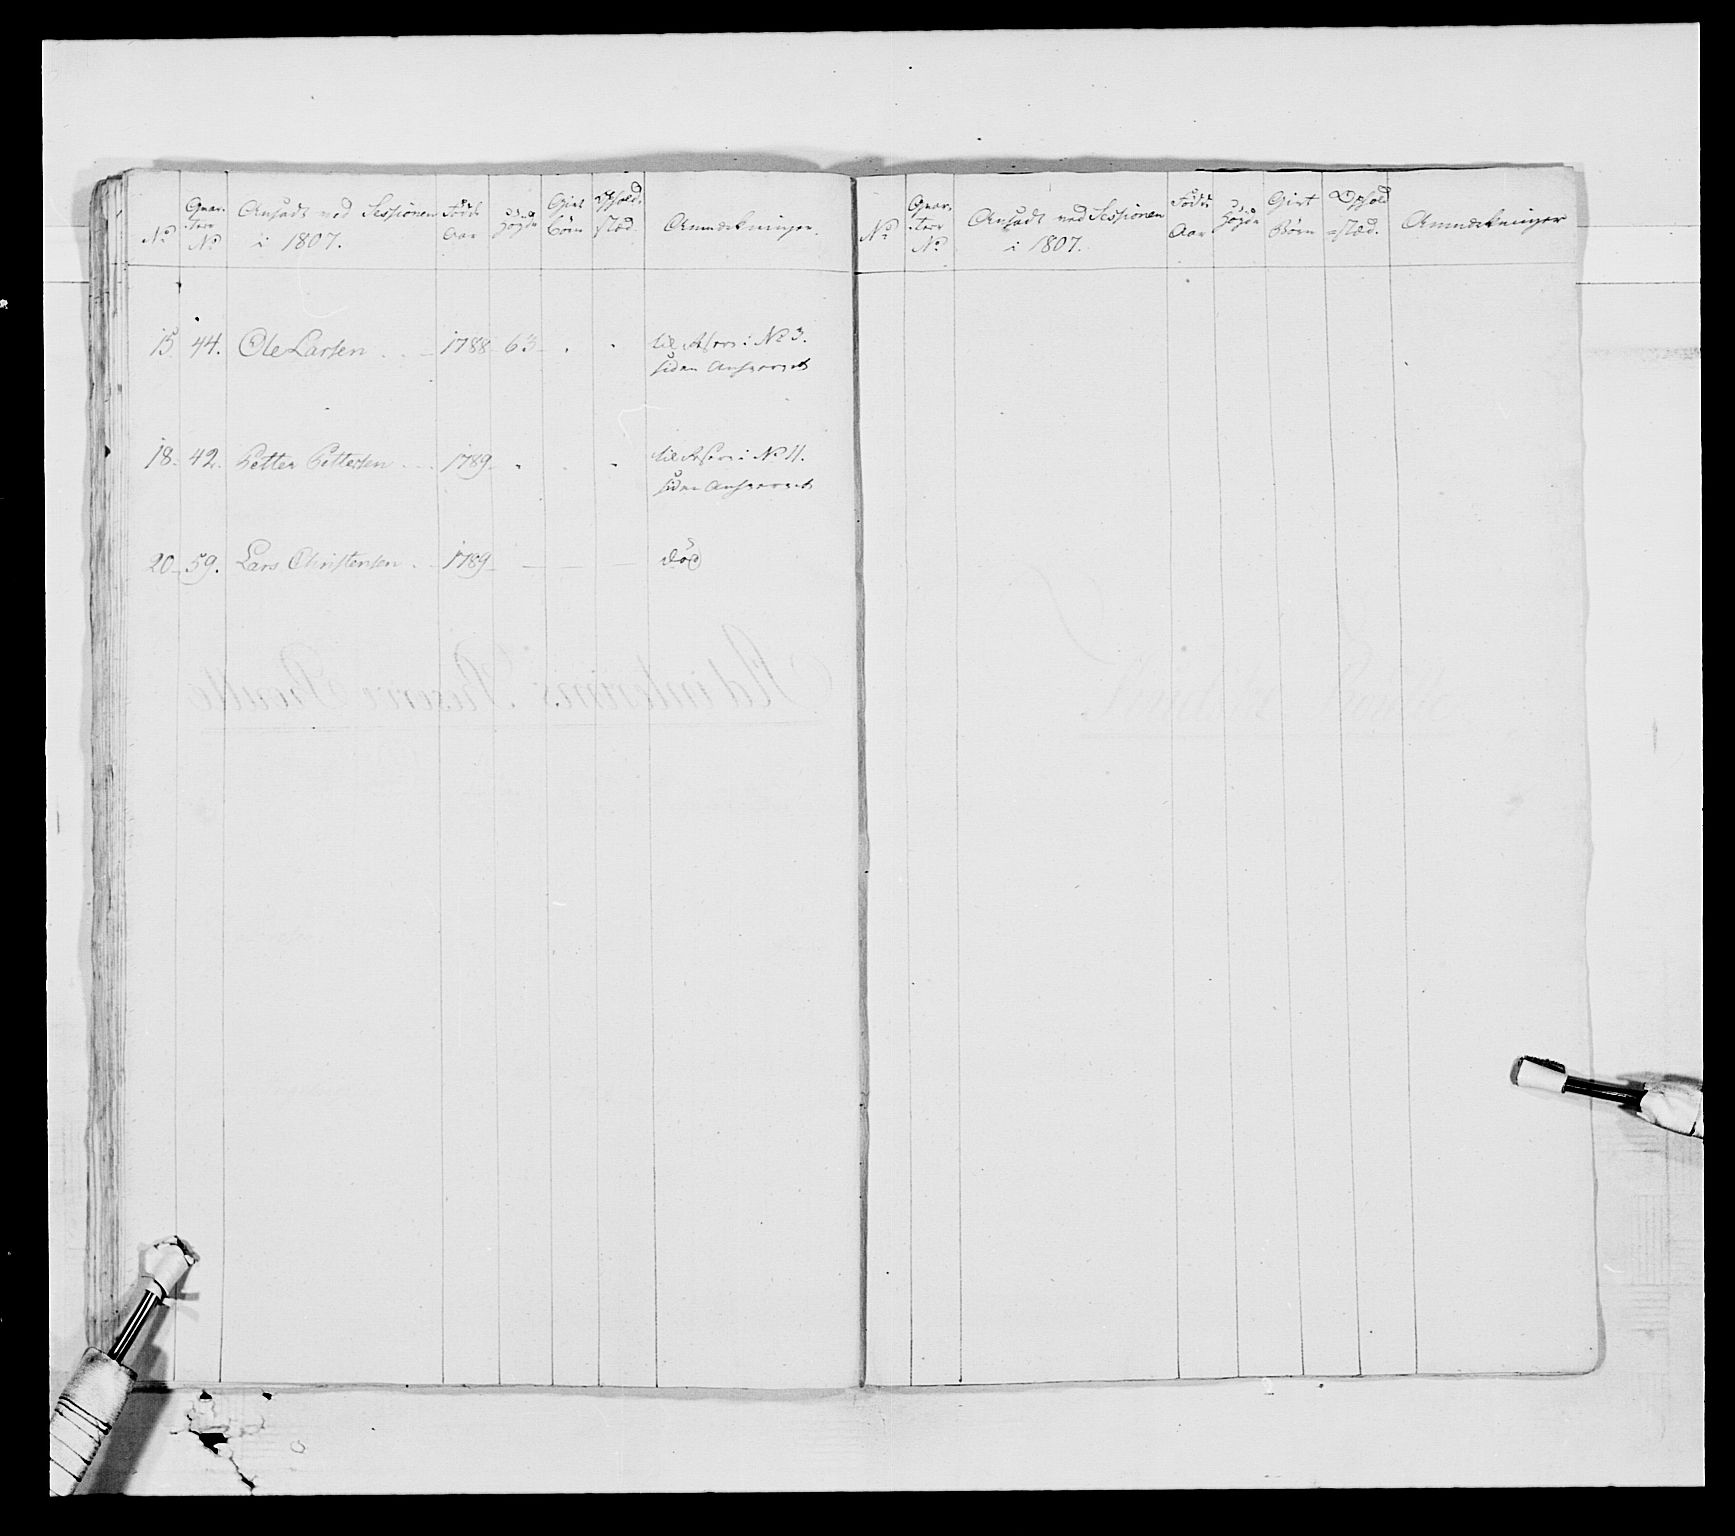 No
Quar-
teer
No
Ansadt ved Sessionen
i 1807.
Føde
Aar
Høyde
Givt
Børn
Ophold
stæd.
Anmærkninger.
15 44. Ole Larsen 1788 63 til i No 3.
siden
18. 42. Petter Pettersen 1789 til i No 11.
siden
20 59. Lars Christensen 1789 død
No
Quar-
teer
No
Ansadt ved Sessionen
i 1807.
Føde
Aar
Høyde
Givt
Børn
Ophold
stæd.
Anmærkninger